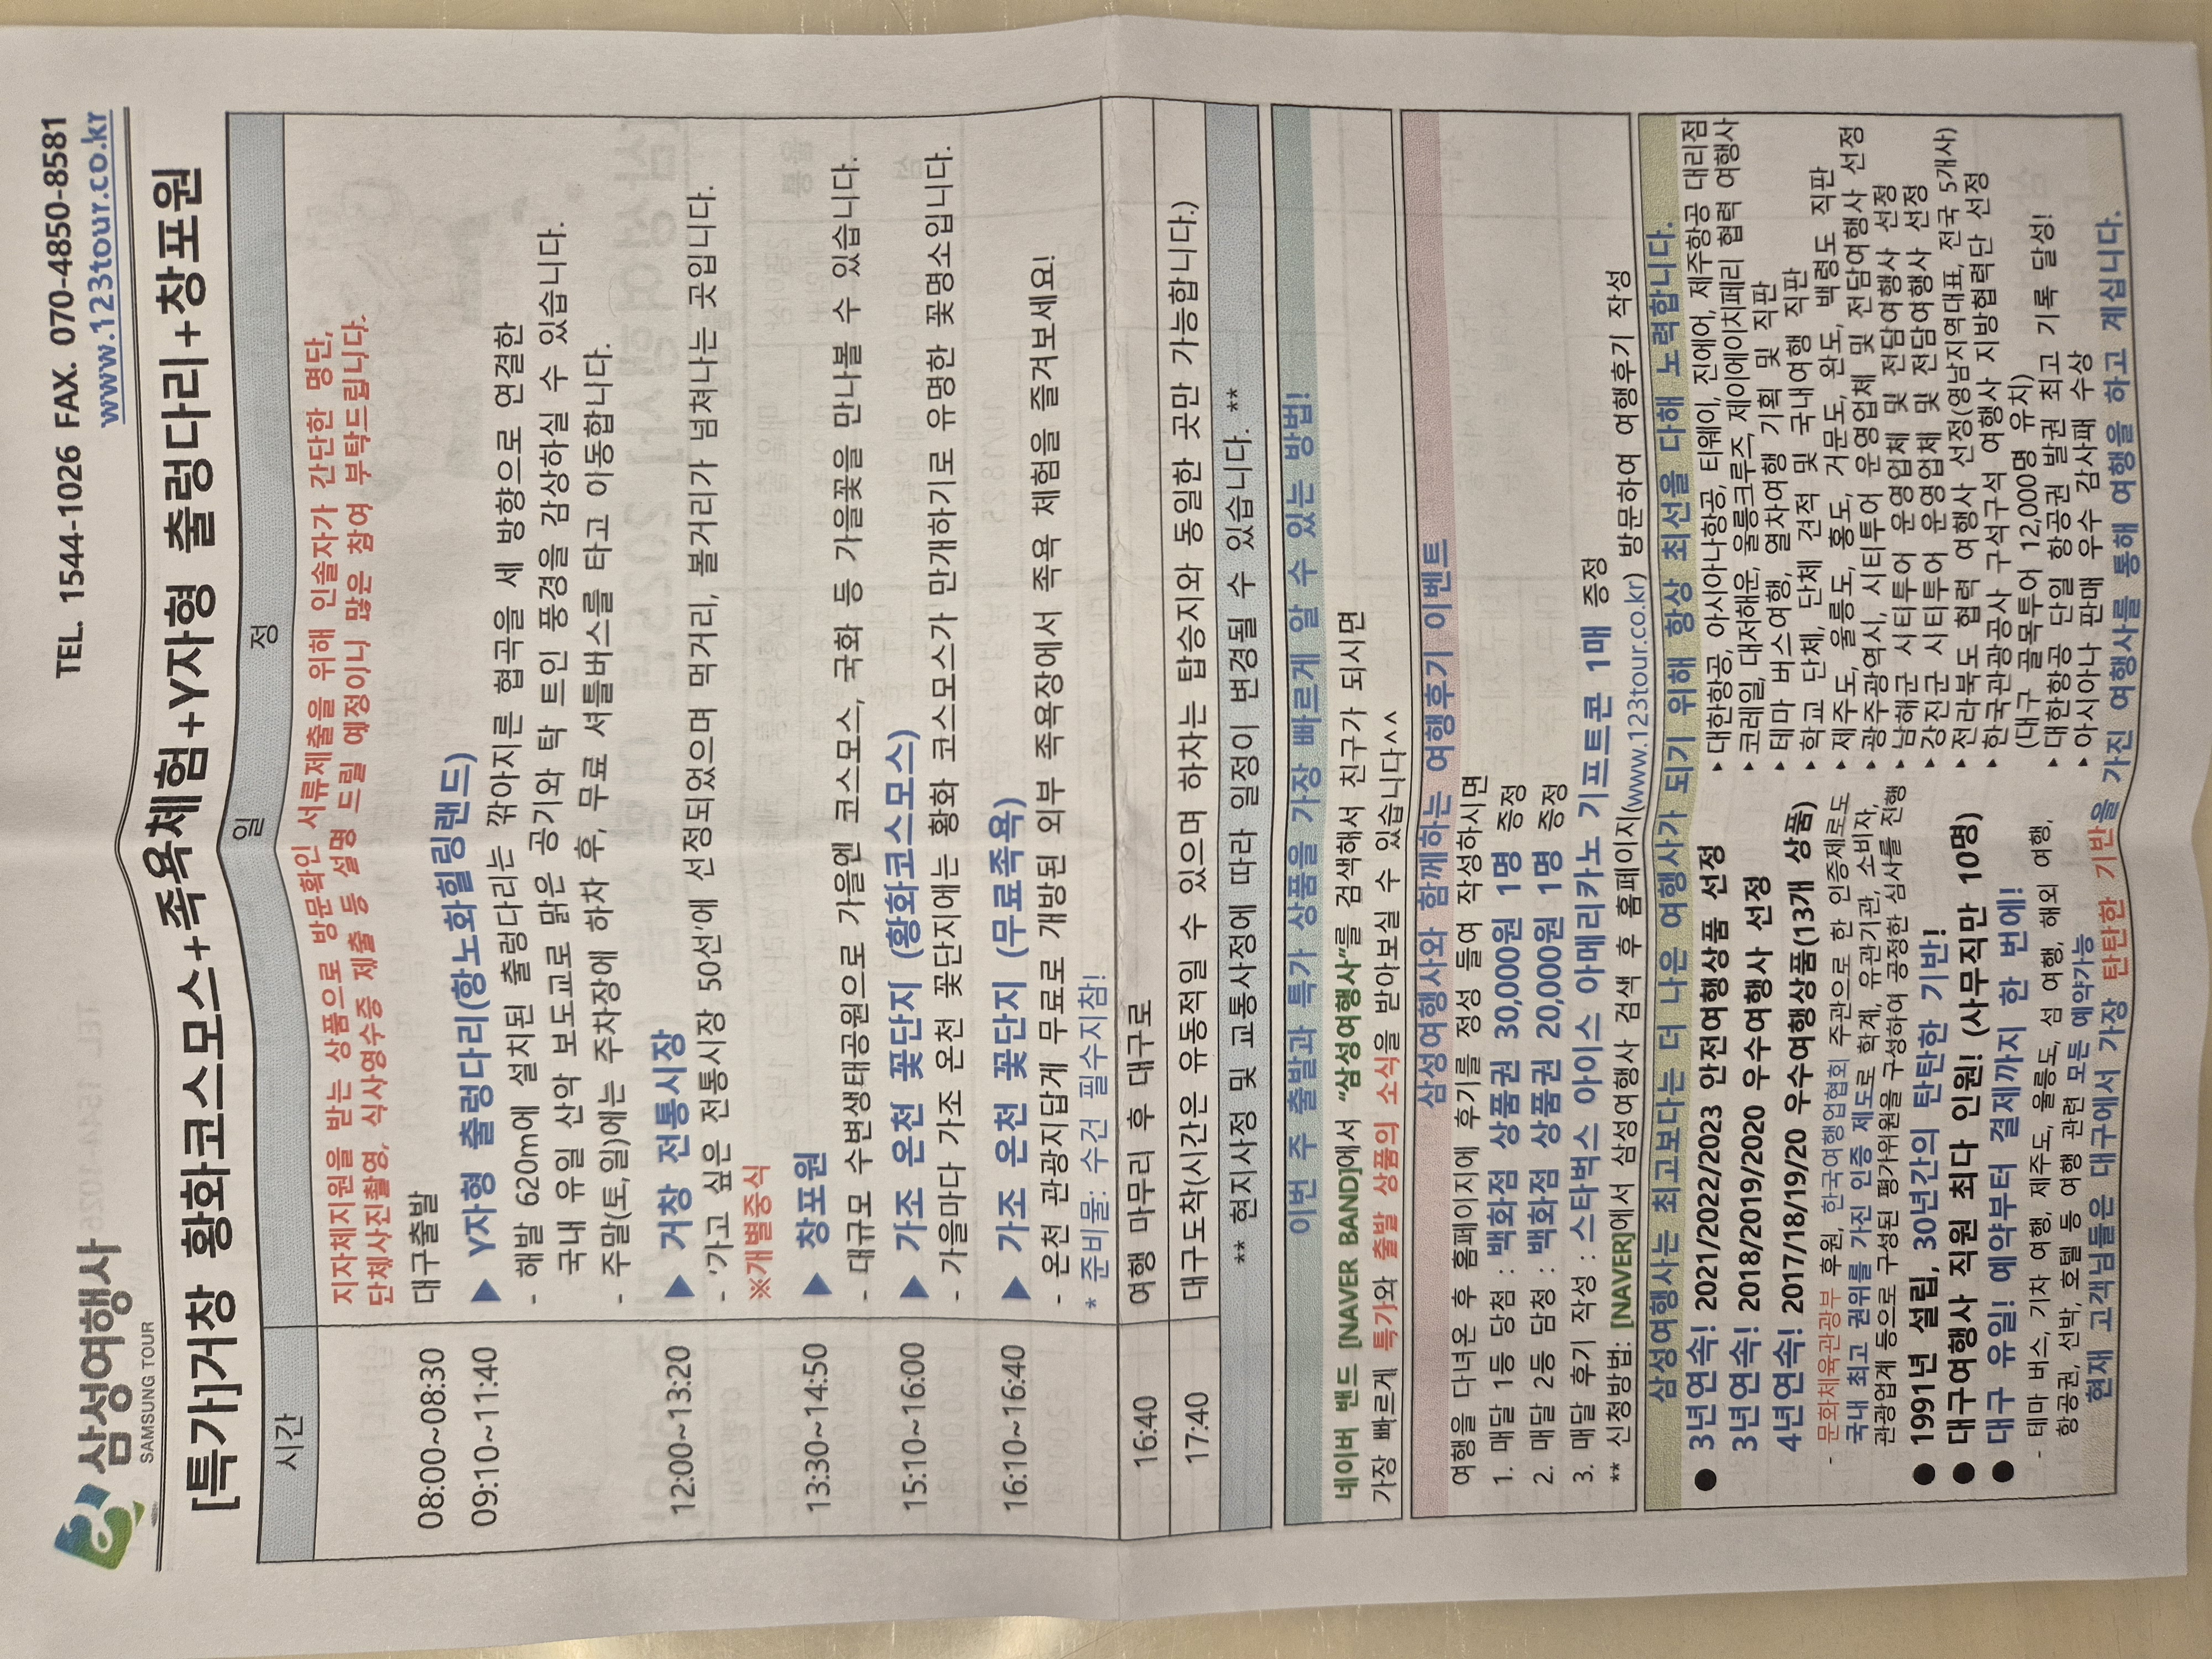 삼성여행사
SAMSUNG TOUR
TEL. 1544-1026 FAX. 070-4850-8581
www.123tour.co.kr
[특가]거창 황화코스모스+족욕체험+Y자형 출렁다리+창포원
시간 일 정
지자체지원을 받는 상품으로 방문확인 서류제출을 위해 인솔자가 간단한 명단,
단체사진촬영, 식사영수증 제출 등 설명 드릴 예정이니 많은 참여 부탁드립니다.
08:00~08:30 대구출발
09:10~11:40 ▶ Y자형 출렁다리(항노화힐링랜드)
- 해발 620m에 설치된 출렁다리는 깎아지른 협곡을 세 방향으로 연결한
국내 유일 산악 보도교로 맑은 공기와 탁 트인 풍경을 감상하실 수 있습니다.
- 주말(토,일)에는 주차장에 하차 후, 무료 셔틀버스를 타고 이동합니다.
12:00~13:20 ▶ 거창 전통시장
- '가고 싶은 전통시장 50선'에 선정되었으며 먹거리, 볼거리가 넘쳐나는 곳입니다.
※개별중식
13:30~14:50 ▶ 창포원
- 대규모 수변생태공원으로 가을엔 코스모스, 국화 등 가을꽃을 만나볼 수 있습니다.
15:10~16:00 ▶ 가조 온천 꽃단지 (황화코스모스)
- 가을마다 가조 온천 꽃단지에는 황화 코스모스가 만개하기로 유명한 꽃명소입니다.
16:10~16:40 ▶ 가조 온천 꽃단지 (무료족욕)
- 온천 관광지답게 무료로 개방된 외부 족욕장에서 족욕 체험을 즐겨보세요!
* 준비물: 수건 필수지참!
16:40 여행 마무리 후 대구로
17:40 대구도착(시간은 유동적일 수 있으며 하차는 탑승지와 동일한 곳만 가능합니다.)
** 현지사정 및 교통사정에 따라 일정이 변경될 수 있습니다. **
이번 주 출발과 특가 상품을 가장 빠르게 알 수 있는 방법!
네이버 밴드 [NAVER BAND]에서 “삼성여행사”를 검색해서 친구가 되시면
가장 빠르게 특가와 출발 상품의 소식을 받아보실 수 있습니다^^
삼성여행사와 함께하는 여행후기 이벤트
여행을 다녀온 후 홈페이지에 후기를 정성 들여 작성하시면
1. 매달 1등 당첨 : 백화점 상품권 30,000원 1명 증정
2. 매달 2등 담청 : 백화점 상품권 20,000원 1명 증정
3. 매달 후기 작성 : 스타벅스 아이스 아메리카노 기프트콘 1매 증정
** 신청방법: [NAVER]에서 삼성여행사 검색 후 홈페이지(www.123tour.co.kr) 방문하여 여행후기 작성
삼성여행사는 최고보다는 더 나은 여행사가 되기 위해 항상 최선을 다해 노력합니다.
● 3년연속! 2021/2022/2023 안전여행상품 선정
3년연속! 2018/2019/2020 우수여행사 선정
4년연속! 2017/18/19/20 우수여행상품(13개 상품)
- 문화체육관광부 후원, 한국여행업협회 주관으로 한 인증제로도
국내 최고 권위를 가진 인증 제도로 학계, 유관기관, 소비자,
관광업계 등으로 구성된 평가위원을 구성하여 공정한 심사를 진행
● 1991년 설립, 30년간의 탄탄한 기반!
● 대구여행사 직원 최다 인원! (사무직만 10명)
● 대구 유일! 예약부터 결제까지 한 번에!
- 테마 버스, 기차 여행, 제주도, 울릉도, 섬 여행, 해외 여행,
항공권, 선박, 호텔 등 여행 관련 모든 예약가능
▸ 대한항공, 아시아나항공, 티웨이, 진에어, 제주항공 대리점
▸ 코레일, 대저해운, 울릉크루즈, 제이에이치페리 협력 여행사
▸ 테마 버스여행, 열차여행 기획 및 직판
▸ 학교 단체, 단체 견적 및 국내여행 직판
▸ 제주도, 울릉도, 홍도, 거문도, 완도, 백령도 직판
▸ 광주광역시, 시티투어 운영업체 및 전담여행사 선정
▸ 남해군 시티투어 운영업체 및 전담여행사 선정
▸ 강진군 시티투어 운영업체 및 전담여행사 선정
▸ 전라북도 협력 여행사 선정(영남지역대표, 전국 5개사)
▸ 한국관광공사 구석구석 여행사 지방협력단 선정
(대구 골목투어 12,000명 유치)
▸ 대한항공 단일 항공권 발권 최고 기록 달성!
▸ 아시아나 판매 우수 감사패 수상
현재 고객님들은 대구에서 가장 탄탄한 기반을 가진 여행사를 통해 여행을 하고 계십니다.